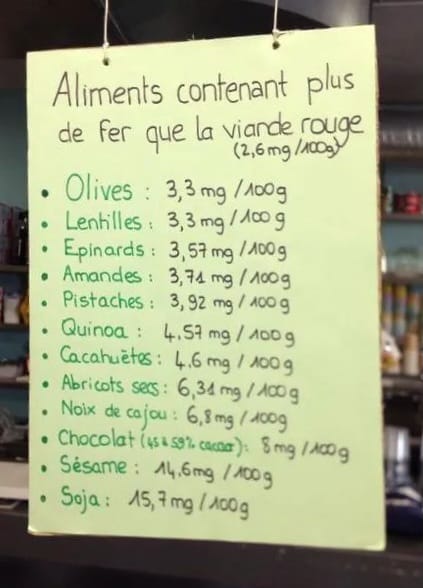 Aliments contenant plus
de fer que la viande rouge
(2,6mg/100g)
• Olives : 3,3 mg / 100g
• Lentilles : 3,3 mg / 100 g
• Epinards : 3,57 mg / 100g
• Amandes : 3,71 mg / 100g
• Pistaches : 3,92 mg / 100g
• Quinoa : 4.57 mg / 100g
• Cacahuètes : 4.6 mg / 100g
• Abricots secs : 6,31 mg / 100g
• Noix de cajou : 6,8 mg / 100g
• Chocolat (45 à 59% cacao) : 8 mg / 100g
• Sésame : 14,6mg / 100g
• Soja : 15,7 mg / 100g